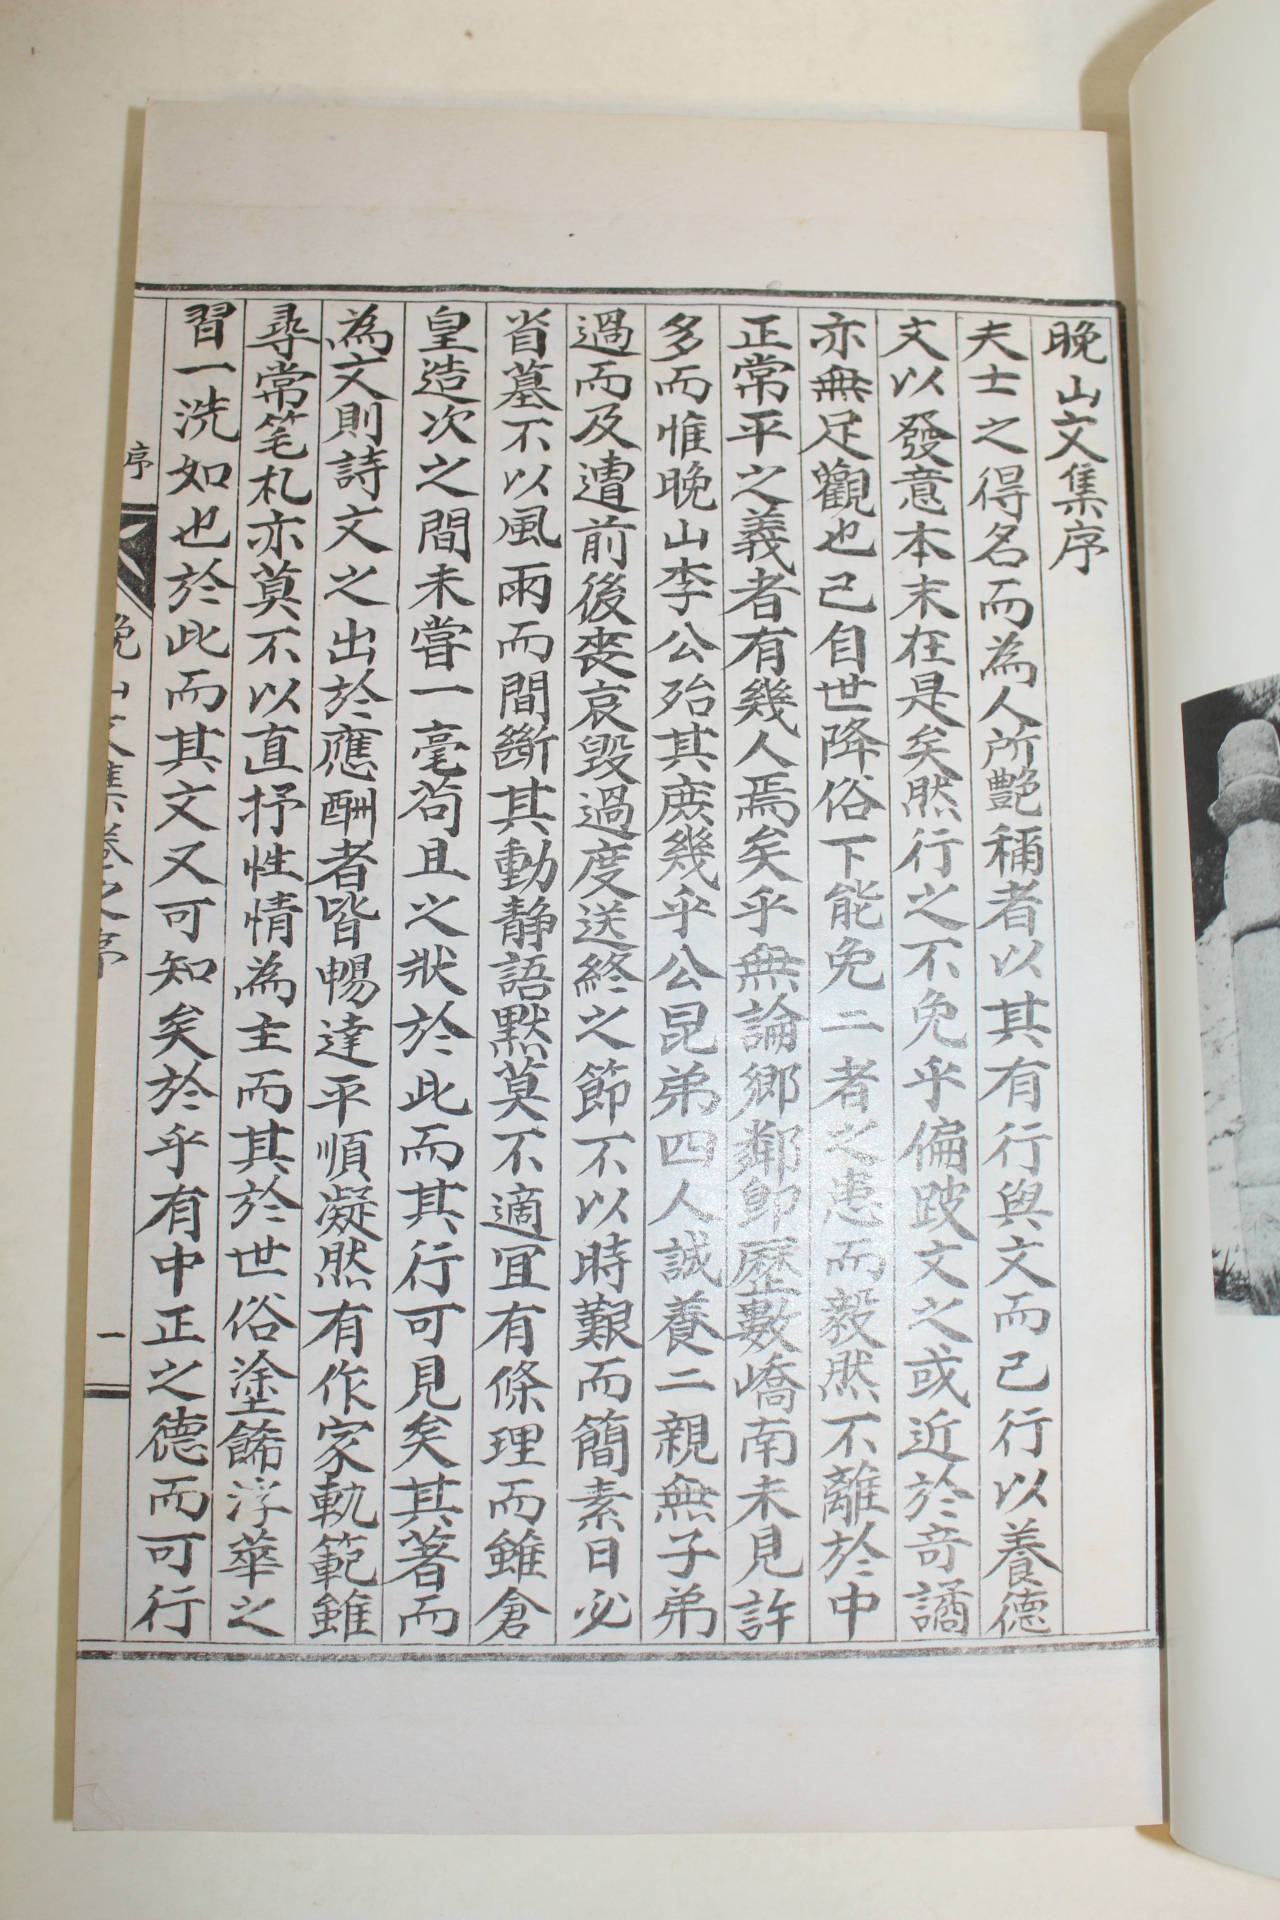 晚山文集序
夫士之得名而為人所艶稱者以其有行與文而已行以養德
文以發意本末在是矣然行之不免乎偏跛文之或近於奇譎
亦無足觀也已自世降俗下能免二者之患而毅然不離於中
正常平之義者有幾人焉矣乎無論鄉鄰卽歷數嶠南未見許
多而惟晚山李公殆其庶幾乎公昆弟四人誠養二親無子弟
過而及遭前後喪哀毀過度送終之節不以時艱而簡素日必
省墓不以風雨而間斷其動靜語默莫不適宜有條理而雖倉
皇造次之間未嘗一毫苟且之狀於此而其行可見矣其著而
為文則詩文之出於應酬者皆暢達平順凝然有作家軌範雖
尋常笔札亦莫不以直抒性情為主而其於世俗塗餙浮華之
習一洗如也於此而其文又可知矣於乎有中正之德而可行
序
晚山文集卷之序
一